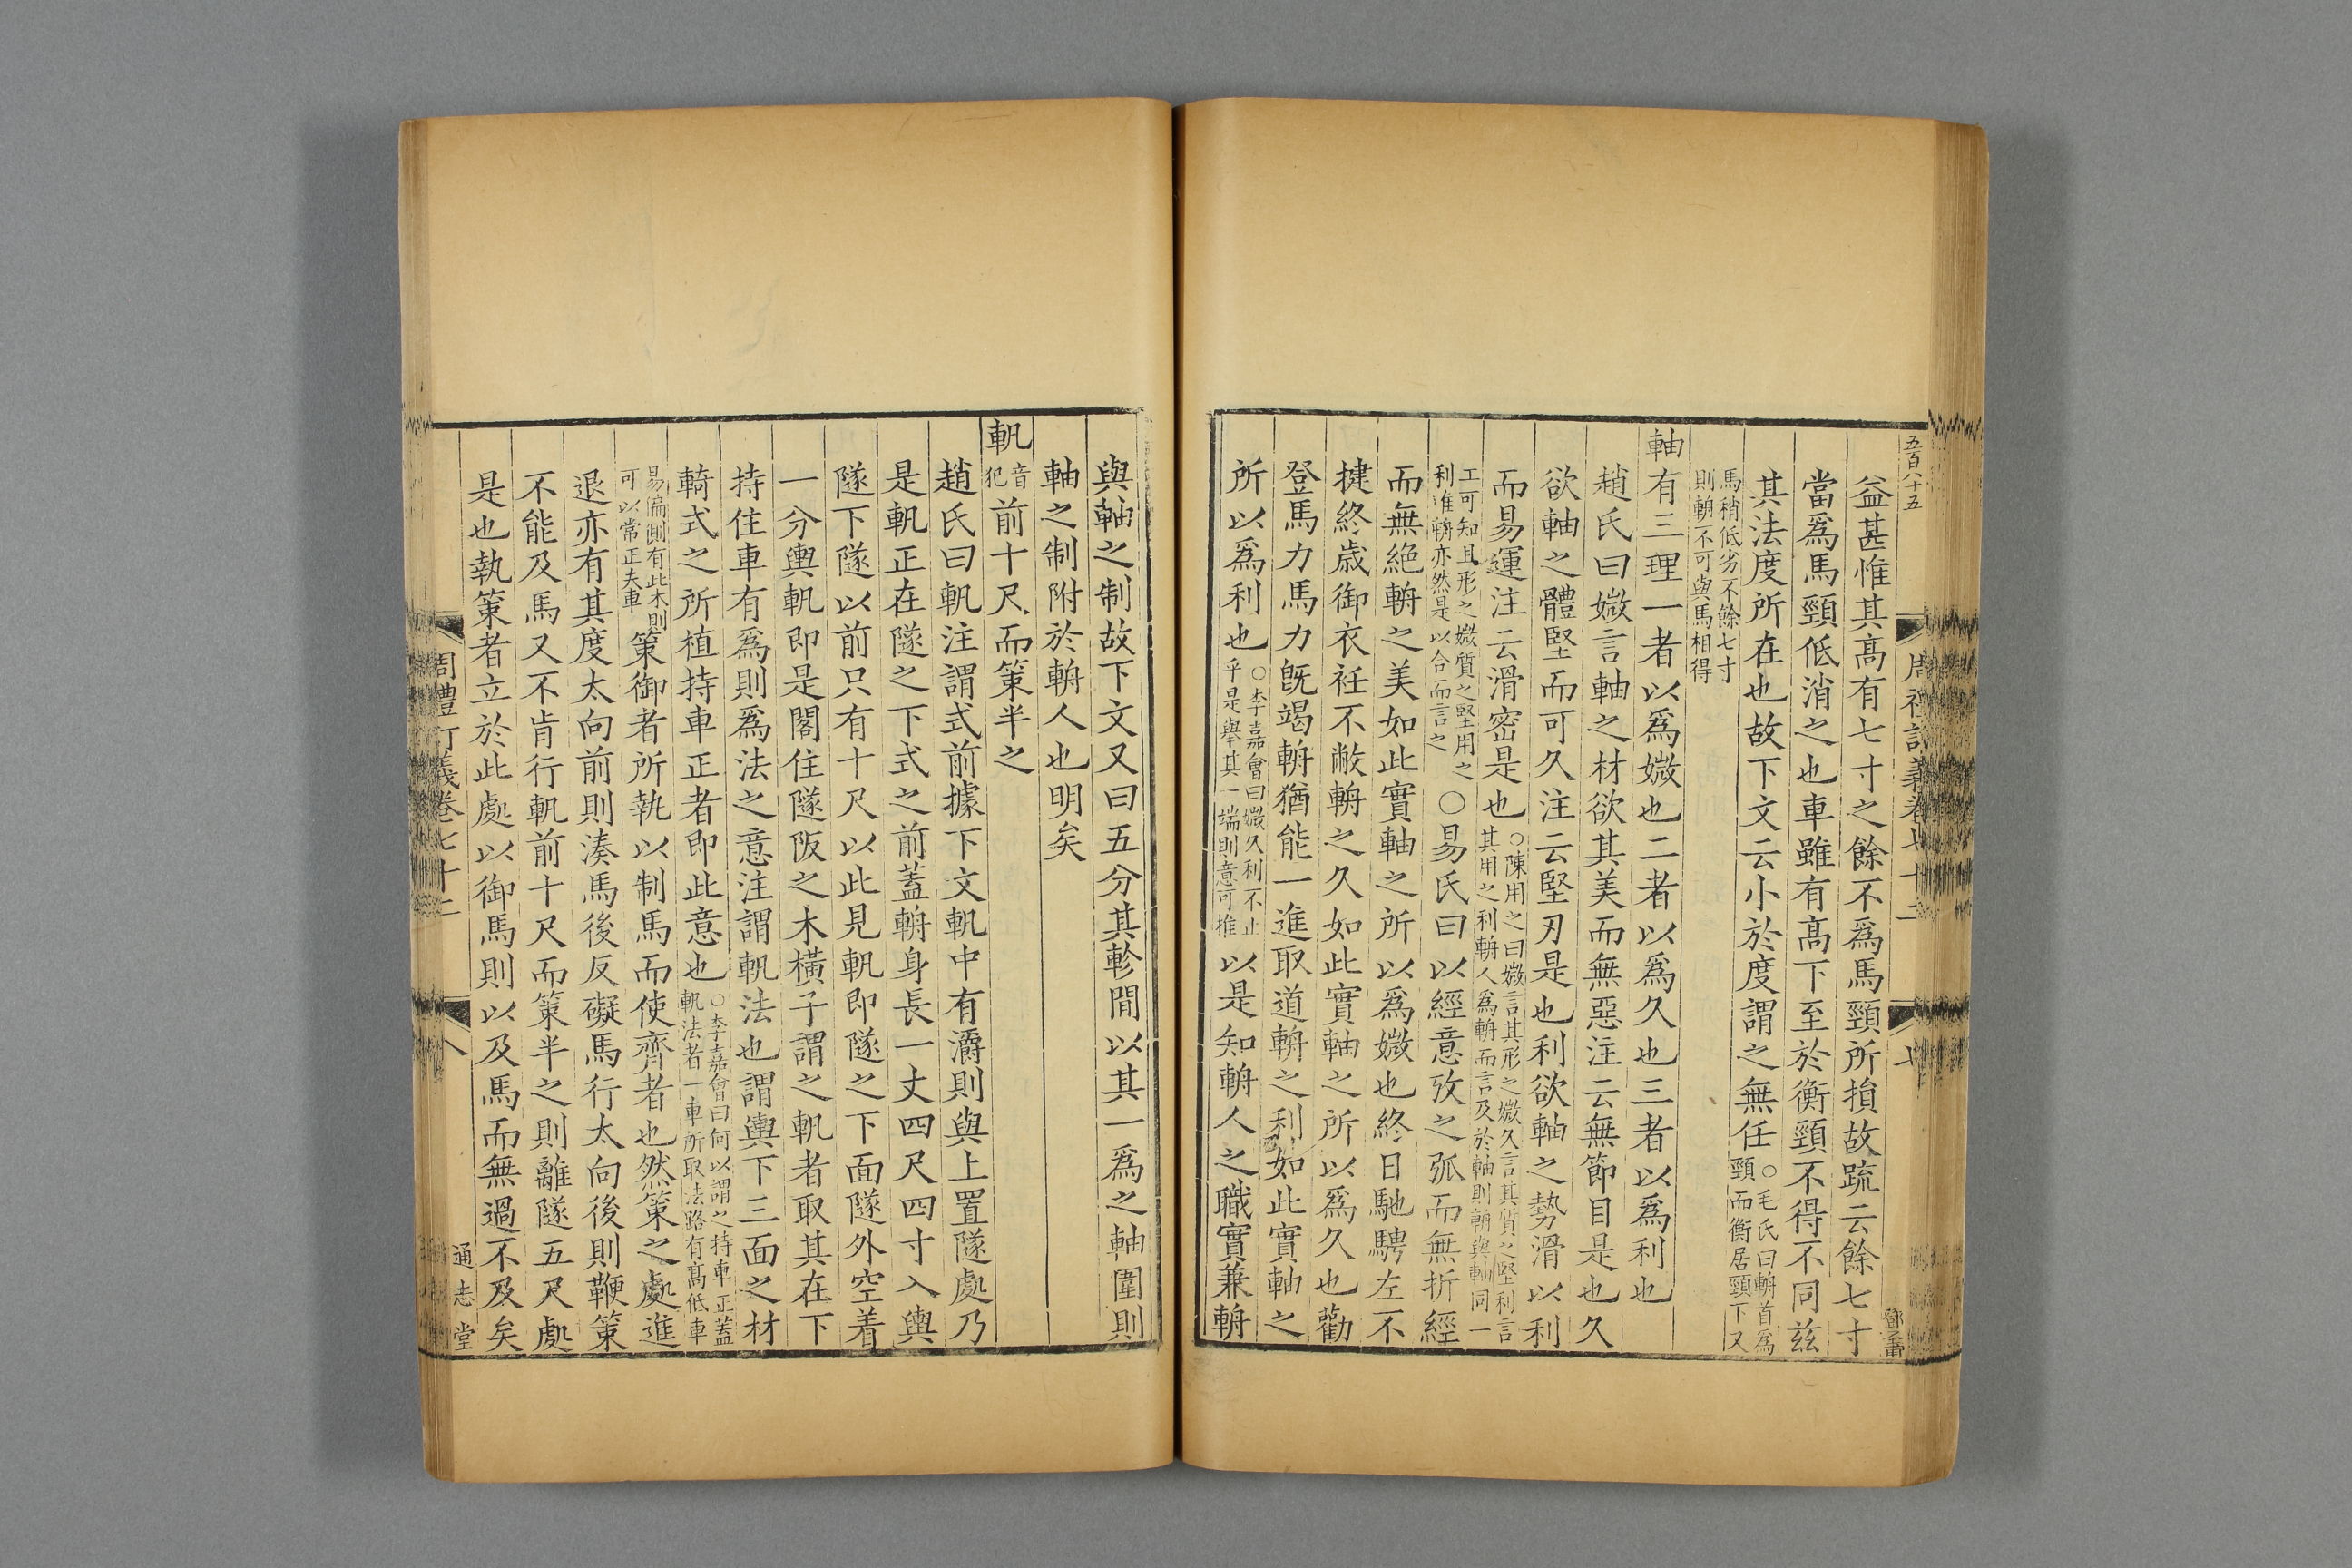 五百八十五
益甚惟其髙有七寸之餘不爲馬頸所損故疏云餘七寸
當爲馬頸低消之也車雖有髙下至於衡頸不得不同兹
其法度所在也故下文云小於度謂之無任○毛氏曰輈首爲頸而衡居頸下又
馬稍低劣不餘七寸則輈不可與馬相得
軸有三理一者以爲媺也二者以爲久也三者以爲利也
趙氏曰媺言軸之材欲其美而無惡注云無節目是也久
欲軸之體堅而可久注云堅刃是也利欲軸之勢滑以利
而易運注云滑密是也○陳用之曰媺言其形之媺久言其質之堅利言其用之利輈人爲輈而言及於軸則輈與軸同一
工可知且形之媺質之堅用之利准輈亦然是以合而言之○易氏曰以經意攷之弧而無折經
而無絶輈之美如此實軸之所以爲媺也終日馳騁左不
揵終歲御衣衽不敝輈之久如此實軸之所以爲久也勸
登馬力馬力旣竭輈猶能一進取道輈之利如此實軸之
所以爲利也○李嘉會曰媺久利不止乎是舉其一端則意可推以是知輈人之職實兼輈
周禮訂義卷七十二
七
鄧子甫
與軸之制故下文又曰五分其軫閒以其一爲之軸圍則
軸之制附於輈人也明矣
軓音犯前十尺而策半之
趙氏曰軓注謂式前據下文軓中有灂則與上置隧處乃
是軓正在隧之下式之前蓋輈身長一丈四尺四寸入輿
隧下隧以前只有十尺以此見軓即隧之下面隧外空着
一分輿軓即是閣住隧阪之木橫子謂之軓者取其在下
持住車有爲則爲法之意注謂軓法也謂輿下三面之材
輢式之所植持車正者即此意也○李嘉會曰何以謂之持車正蓋軓法者一車所取法路有髙低車
易偏側有此木則可以常正夫車策御者所執以制馬而使齊者也然策之處進
退亦有其度太向前則湊馬後反礙馬行太向後則鞭策
不能及馬又不肯行軓前十尺而策半之則離隧五尺處
是也執策者立於此處以御馬則以及馬而無過不及矣
周禮訂義卷七十二
八
通志堂